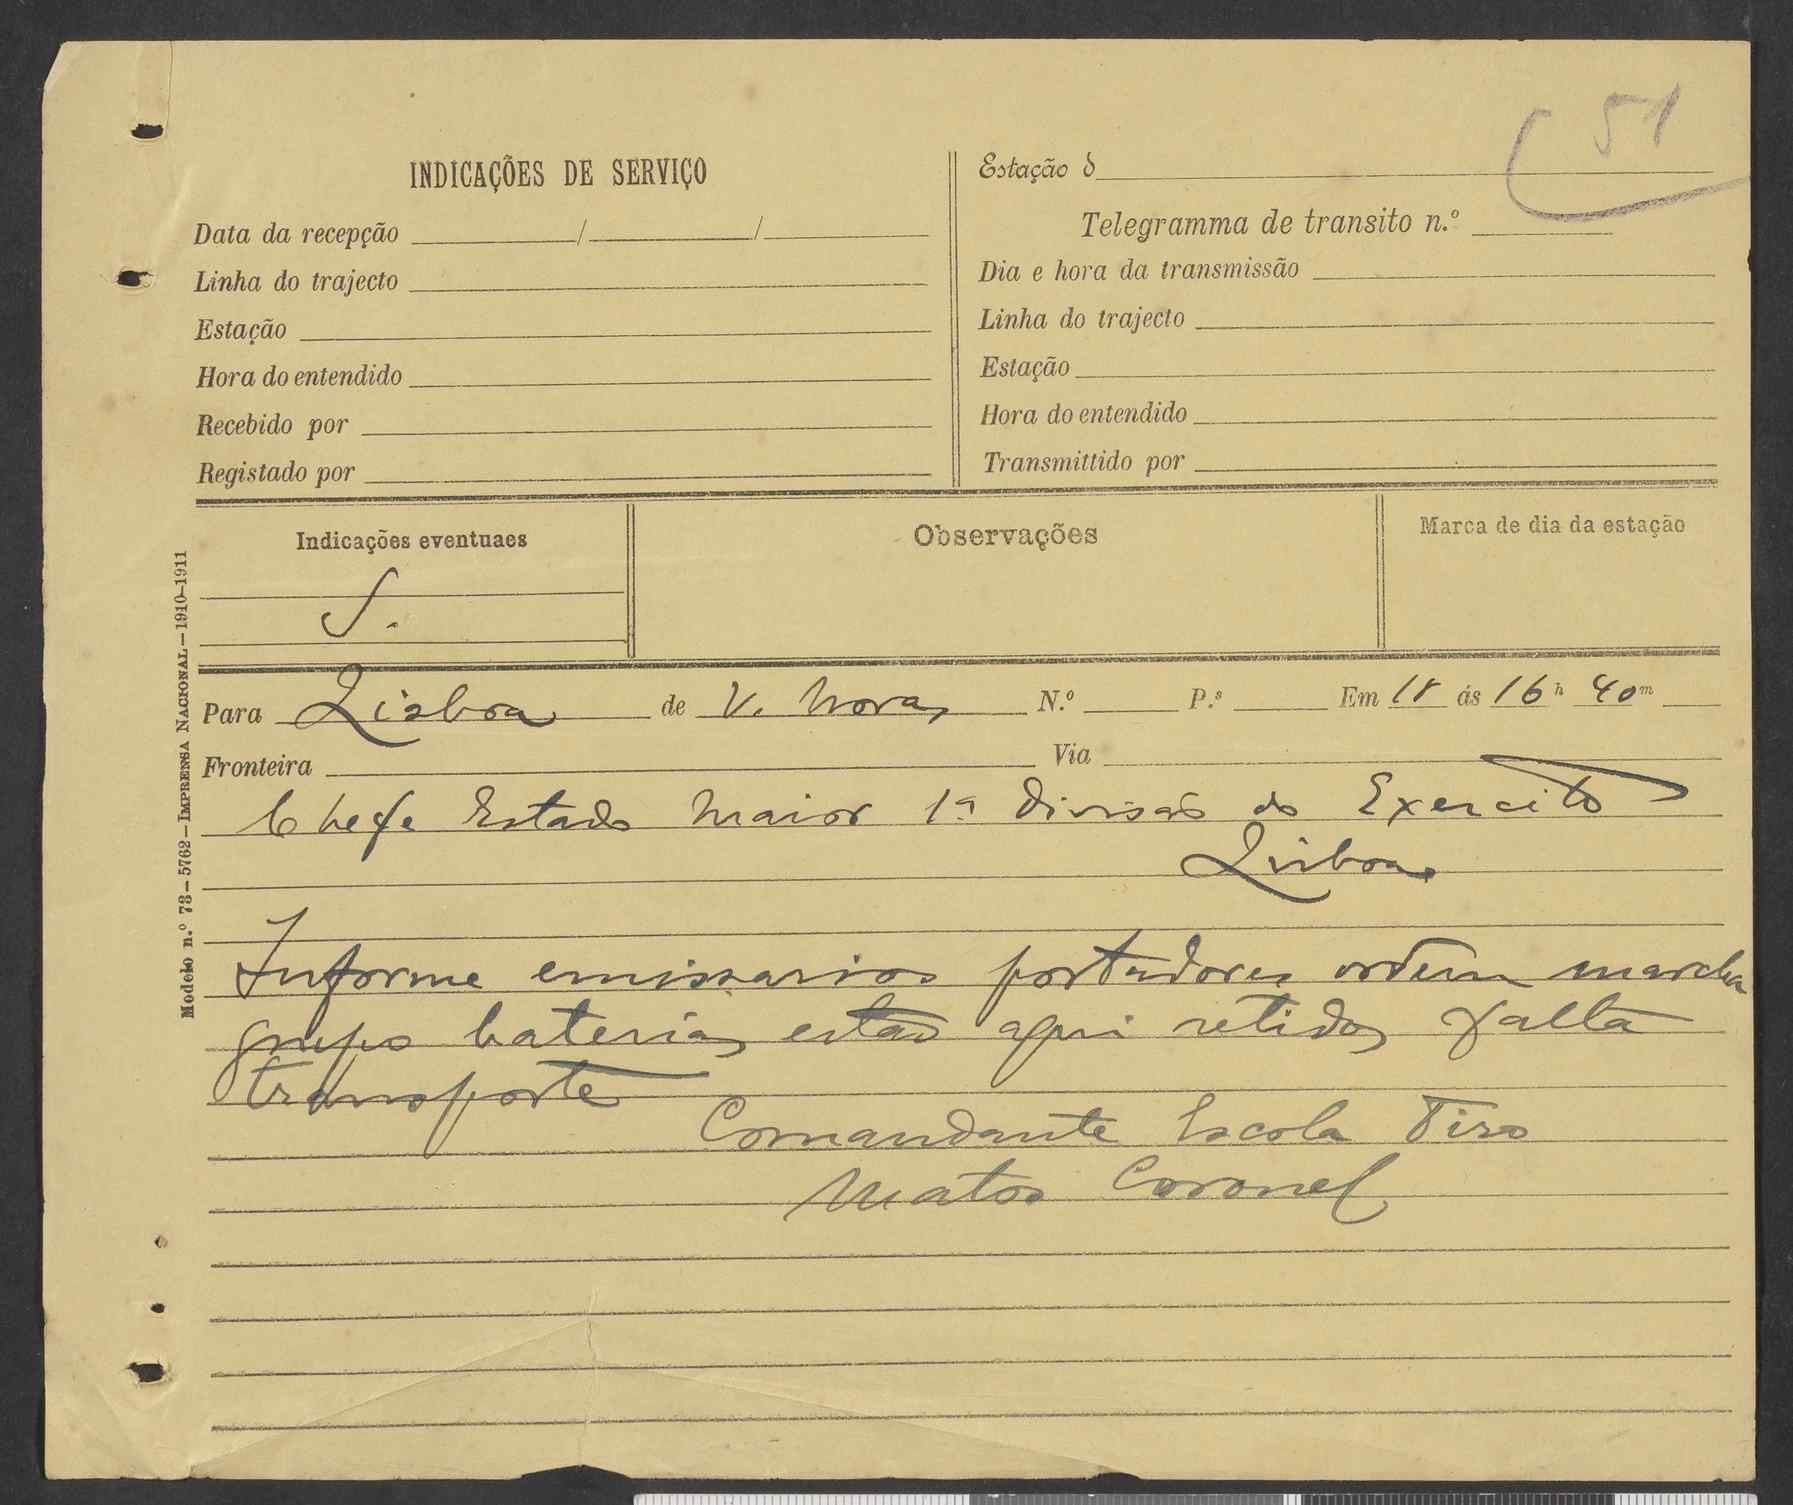 51
INDICAÇÕES DE SERVIÇO
Data da recepção / /
Linha do trajecto
Estação
Hora do entendido
Recebido por
Registado por
Estação d
Telegramma de transito n.º
Dia e hora da transmissão
Linha do trajecto
Estação
Hora do entendido
Transmittido por
Indicações eventuaes
S.
Observações
Marca de dia da estação
Modelo n.º 73—5762—IMPRENSA NACIONAL—1910-1911
Para Lisboa de V. Novas N.º P.s Em 18 ás 16 h 40 m
Fronteira Via
Chefe Estado Maior 1ª Divisão do Exercito
Lisboa
Informe emissarios portadores ordem marcha
grupo baterias estão aqui retidos falta
transporte
Comandante Escola Tiro
Matos Coronel